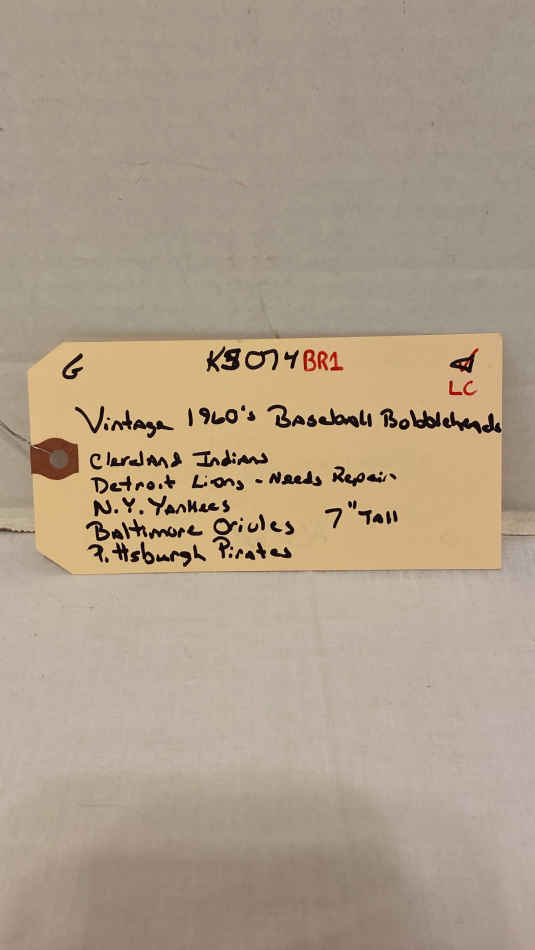 G K3074 BR1
LC
Vintage 1960's Baseball Bobbleheads
Cleveland Indians
Detroit Lions - Needs Repair
N.Y. Yankees
7" Tall
Baltimore Orioles
Pittsburgh Pirates